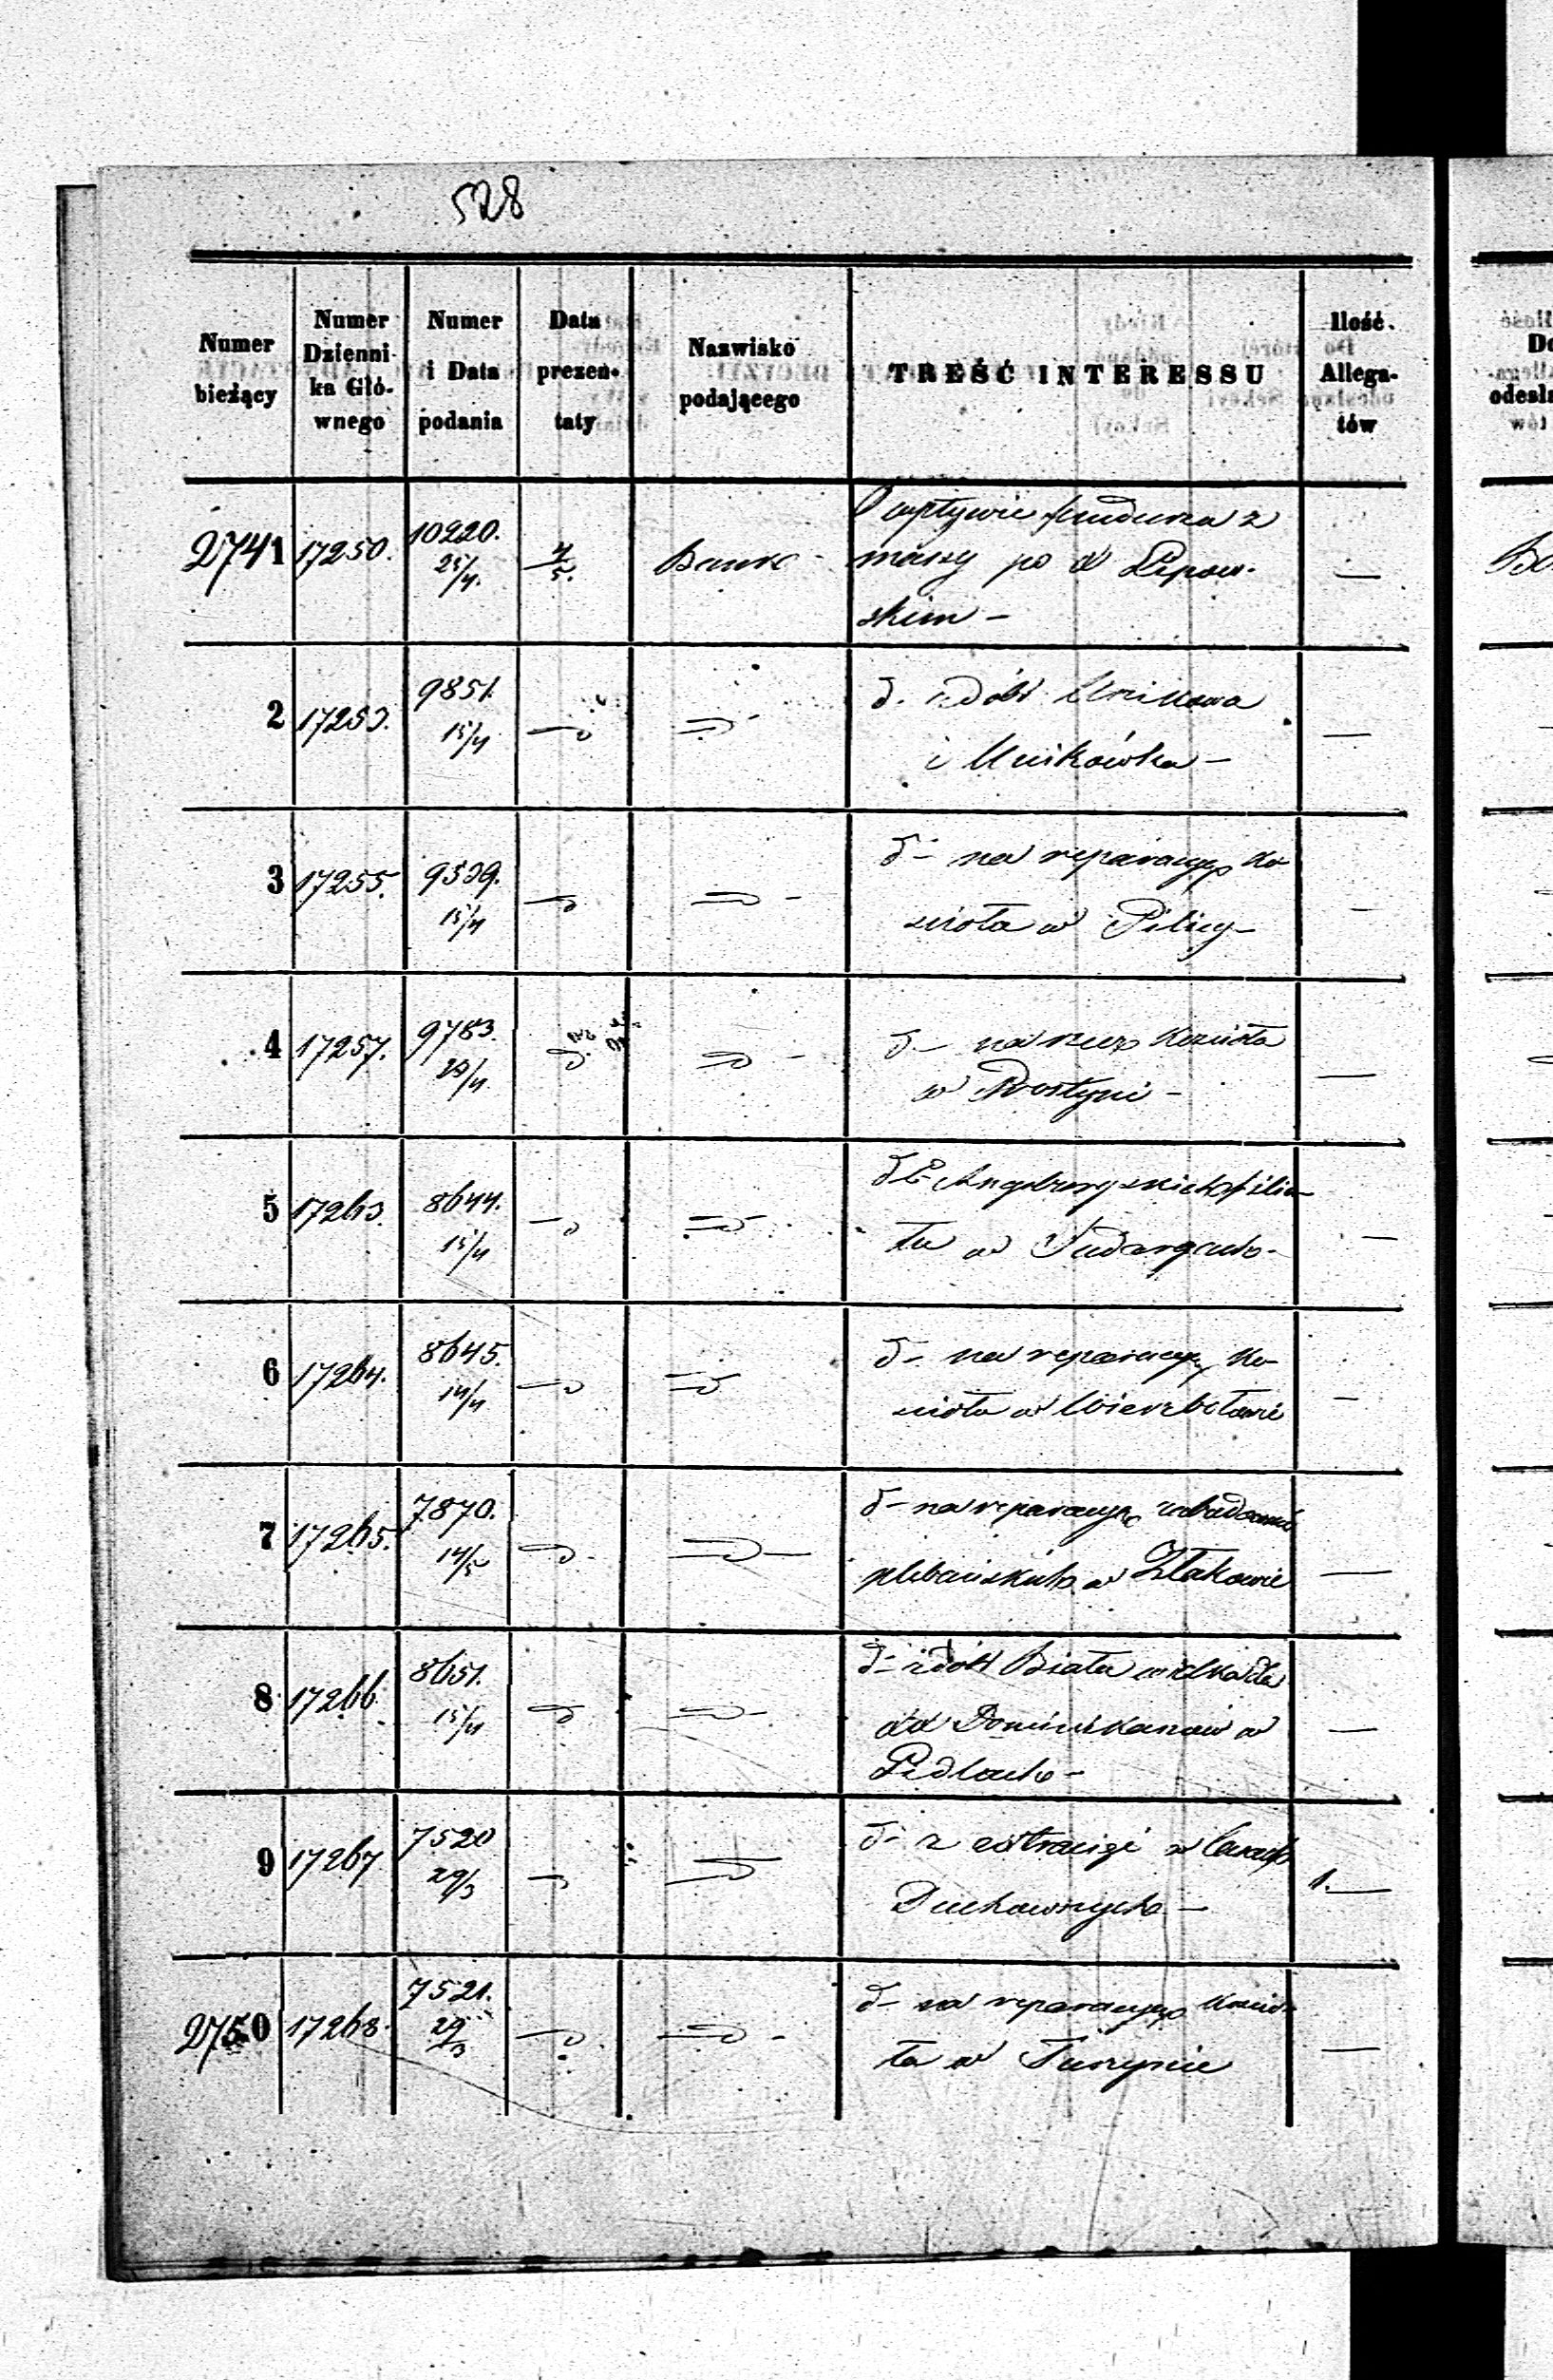 528
Numer bieżący | Numer Dzienni- ka Głó- wnego | Numer i Data podania | Data prezen- taty | Nazwisko podającego | TREŚĆ INTERESSU | Ilość Allega- tów
2741 | 17250. | 10220. 25/4. | 4/5. | Bank - | O wpływie fundusza z
massy po X Lipow-
skim - | —
2 | 17253. | 9851. 15/4 | d. z dóbr
i Unikówka - | —
3 | 17255. | 9539. 15/4 | d- na reparacyę Ko
scioła w Pilicy - | —
4 | 17257. | 9783. 20/4 | d- na rzecz Kościoła
w Prostyni - | —
5 | 17263. | 8644. 15/4 | d-
tu w Sudargach - | —
6 | 17264. | 8645. 14/4 | d- na reparacyę Ko-
scioła w Wierzbołowie | —
7 | 17265. | 7870. 14/5 | d- na reparacyę zabudowań
plebańskich w Złakowie | —
8 | 17266 | 8651. 15/4 | d- z dóbr Biała wielka dla
XX Dominikanów w
| —
9 | 17267 | 7520 29/3 | d- z w
Duchownych - | 1. —
2750 | 17268. | 7521. 29/3 | d- na reparacyę Kościo-
ła w Tuszynie | —